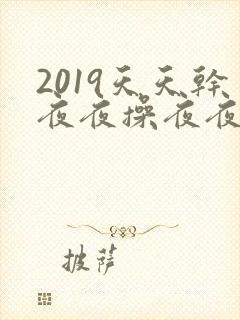 2019天天幹
夜夜操夜夜
披萨